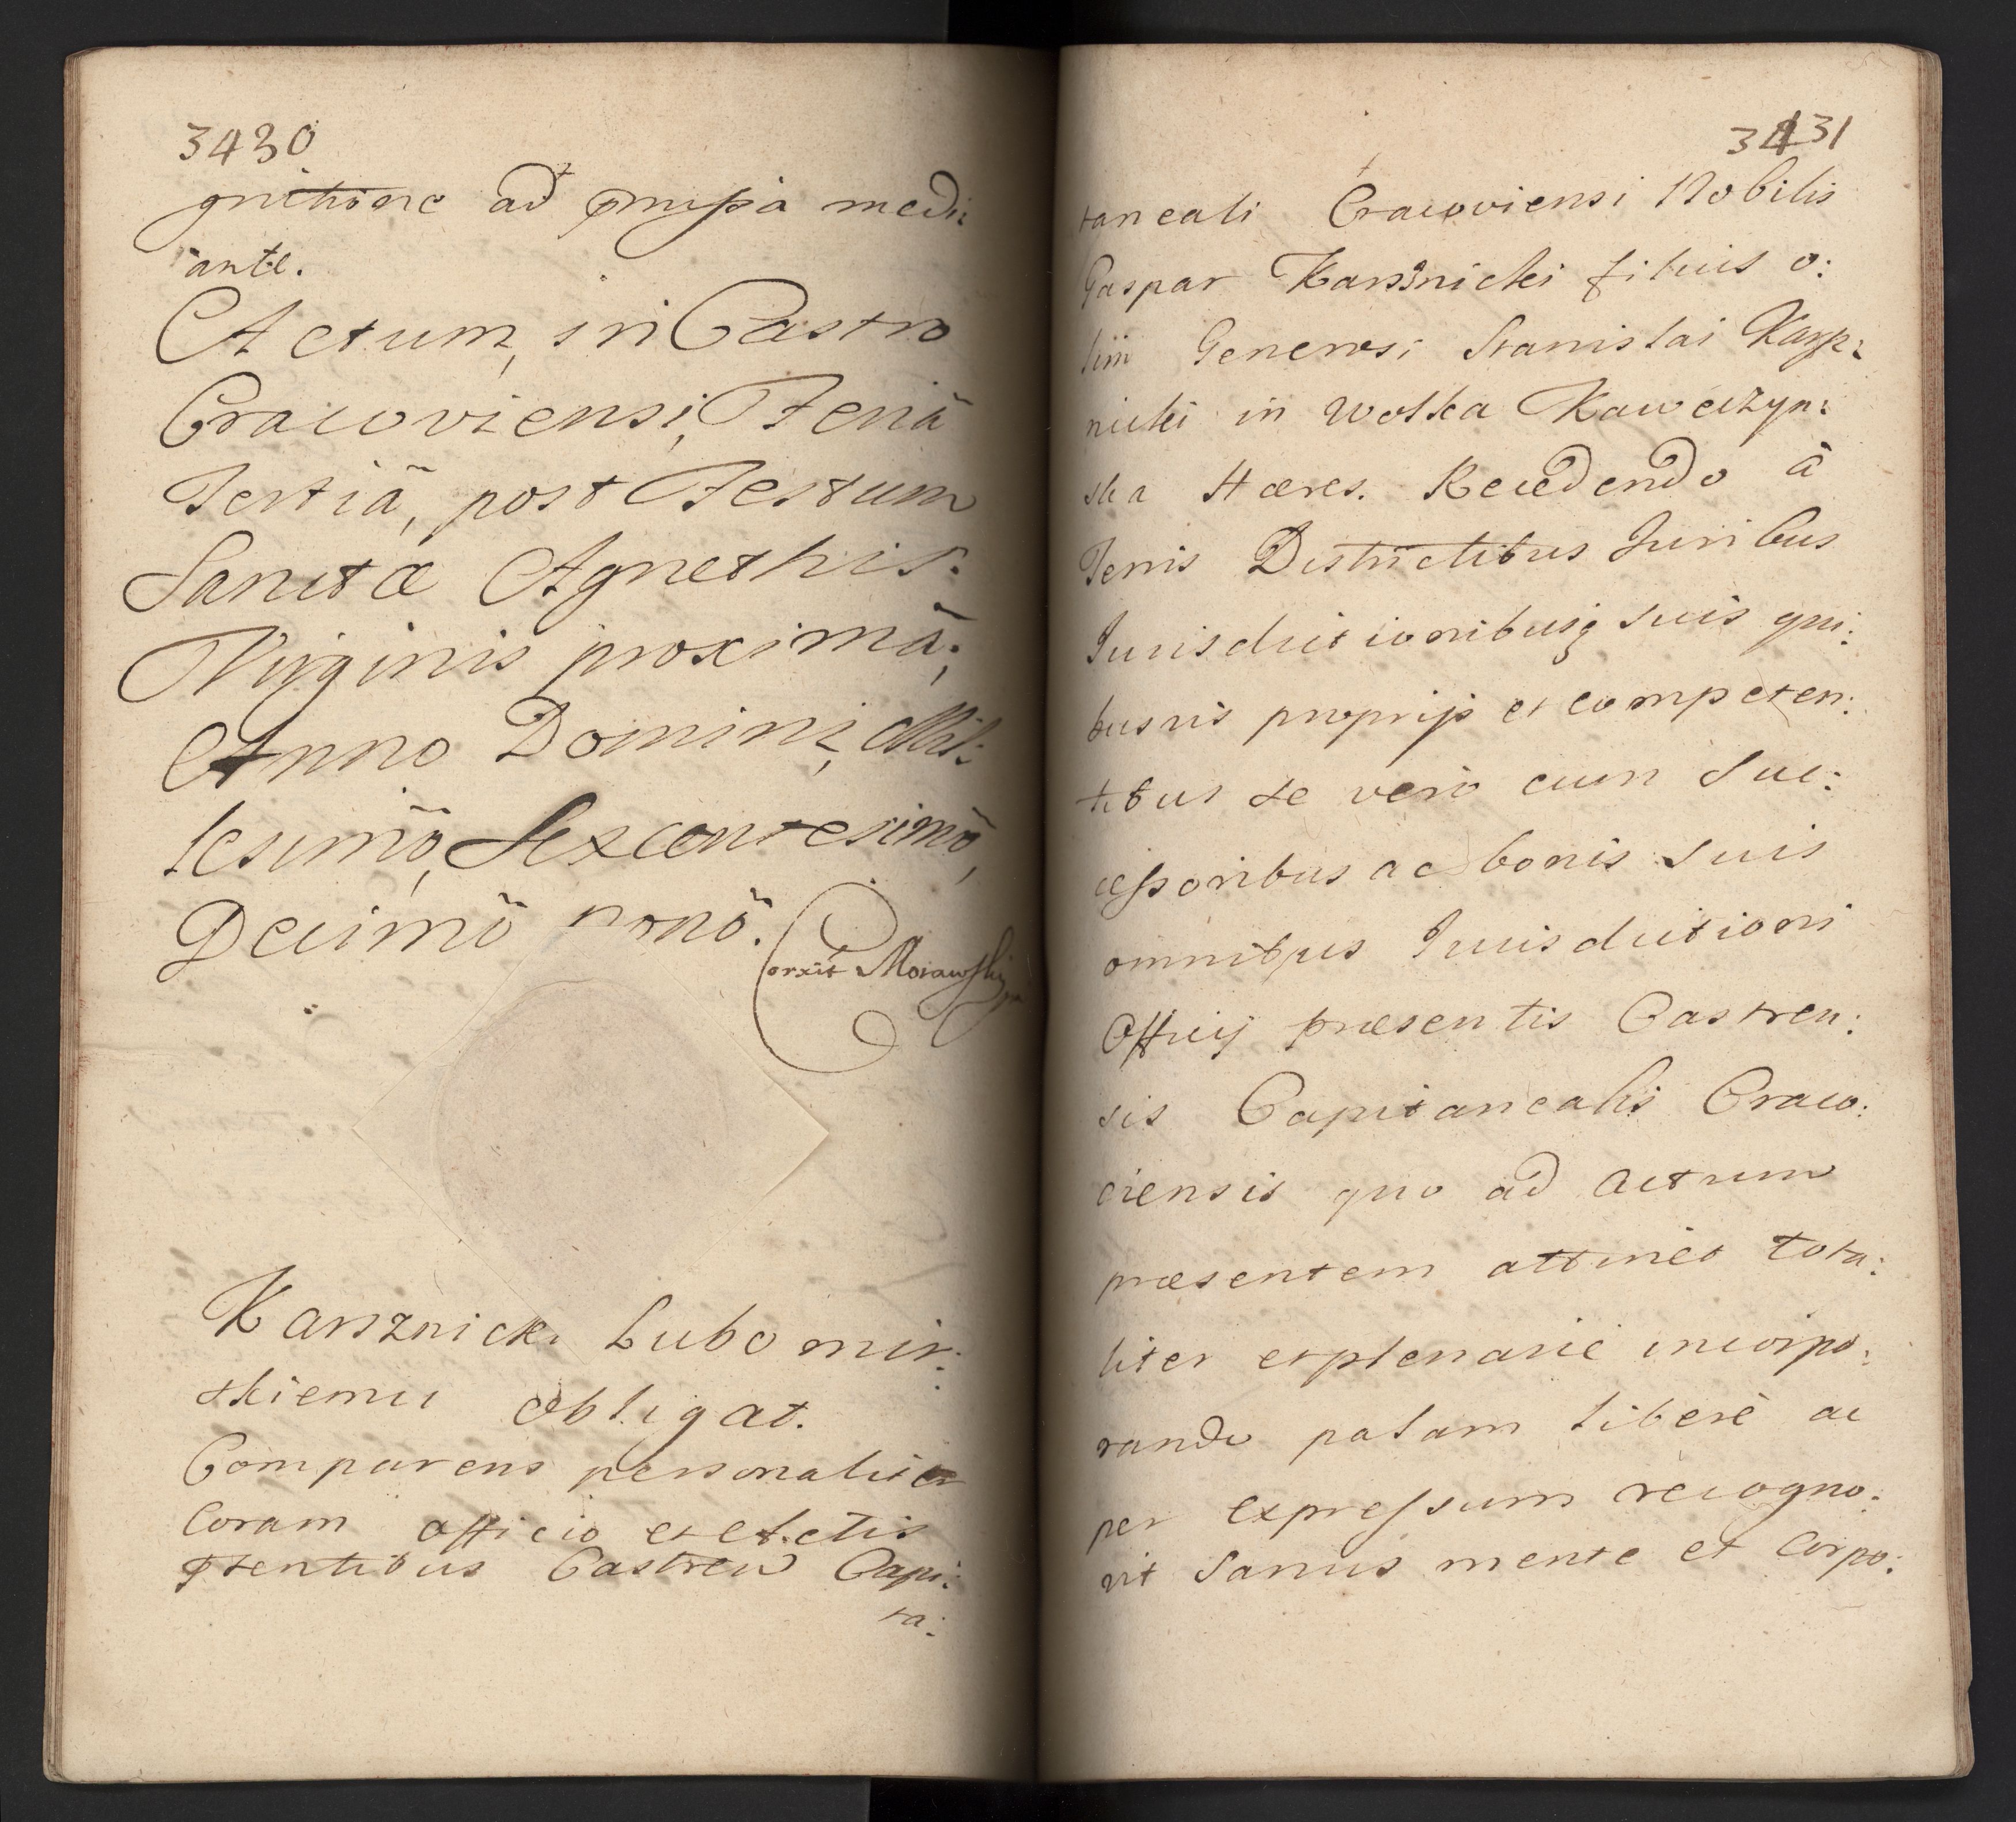 3430
gnitione ad pmissa medi:
ante.
Actum, in Castro
Cracoviensi, Feriâ
Tertiâ, post Festum
Sanctæ Agnethis:
Virginis proximâ;
Anno Domini, Mil:
lesimō, Sexcentesimō,
Decimō nonō.
Corxit Morawski
Karsznicki Lubomir:
skiemu obligat.
Comparens personaliter
Coram officio et Actis
pntentibus Castren Capi:
ta:
3431
taneali Cracoviensi Nobilis
Gaspar Karsznicki filius o:
lim Generosi Stanislai Karsz:
nicki in Wolka Kawczyn:
ska Hæres. Recedendo â
Terris Districtibus Juribus
Jurisdictionibusq suis qui:
busvis proprijs et competen:
tibus se vero cum suc:
cessoribus ac bonis suis
omnibus Jurisdictioni
Officij præsentis Castren:
sis Capitanealis Craco:
viensis quo ad Actum
præsentem attinet tota:
liter et plenarie incorpo:
rando palam liberè ac
per expressum recogno:
vit Sanus mente et Corpo: